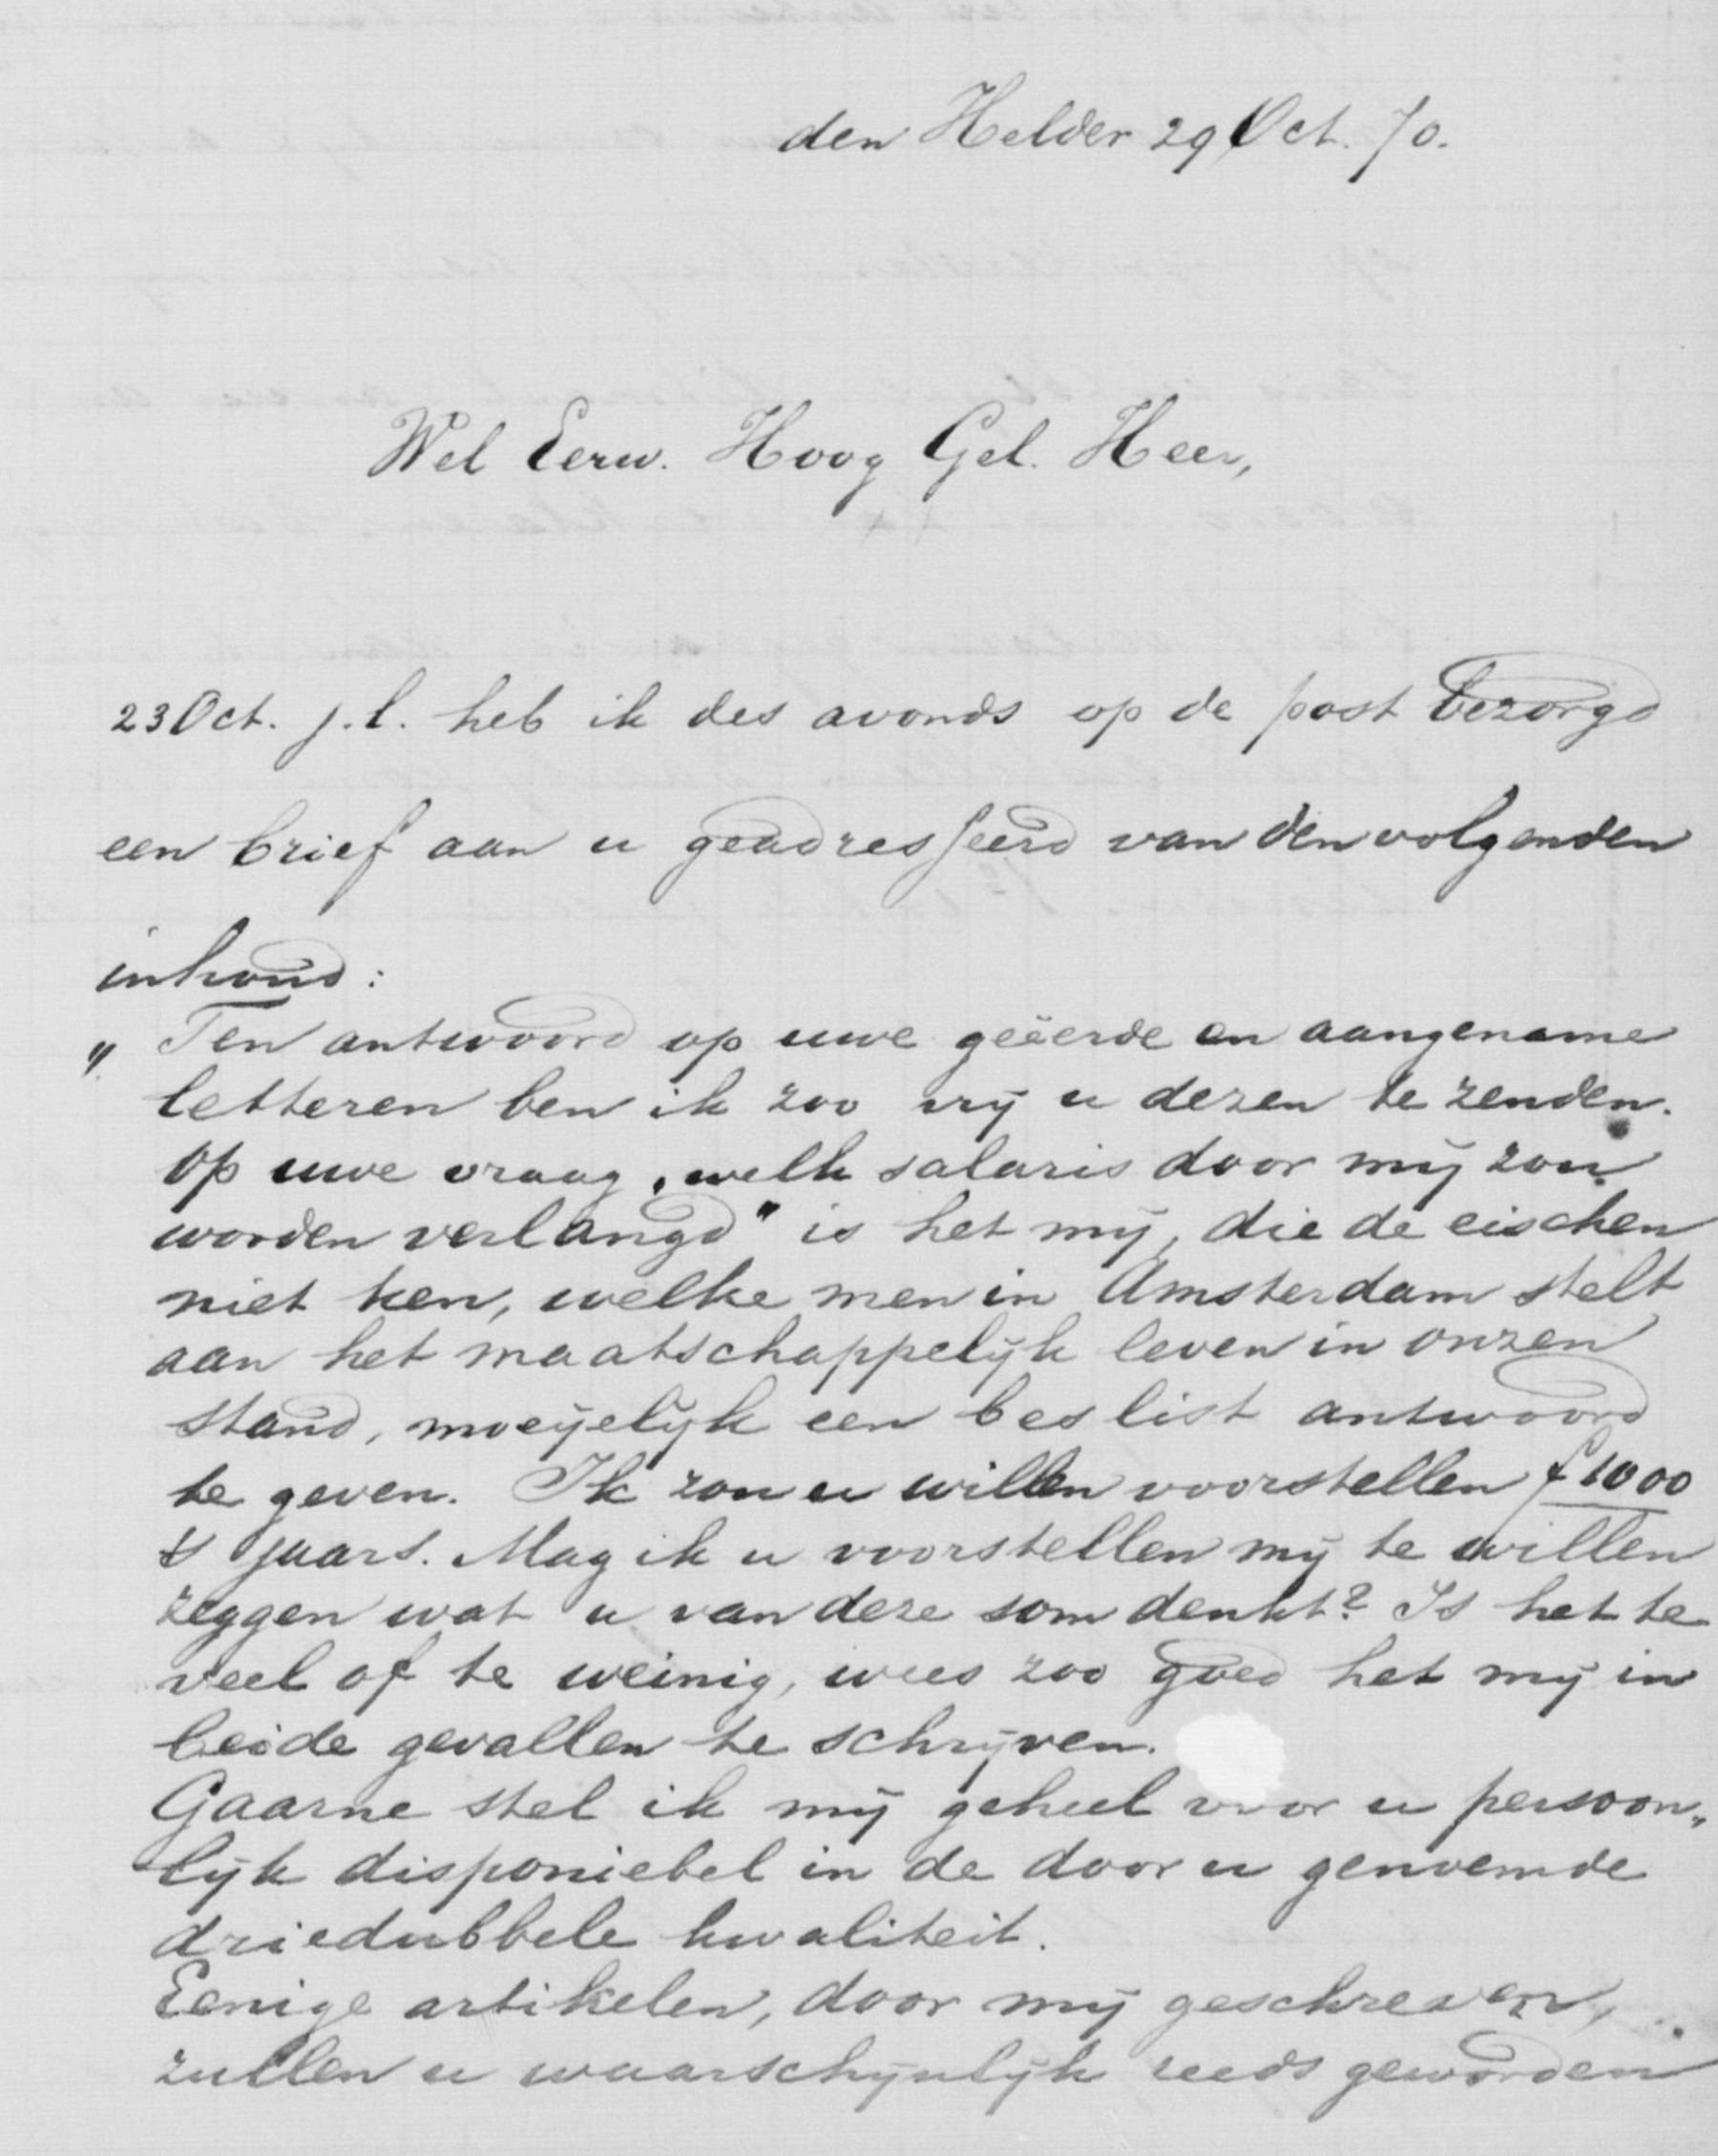 den Helder 29 Oct. 70.
Wel Eerw. Hoog Gel. Heer,
23 Oct. j.l. heb ik des avonds op de post bezorgd
een brief aan u geadresseerd van den volgenden
inhoud:
„ Ten antwoord op uwe geëerde en aangename
letteren ben ik zoo vrij u dezen te zenden.
Op uwe vraag „welk salaris door mij zou
worden verlangd" is het mij, die de eischen
niet ken, welke men in Amsterdam stelt
aan het maatschappelijk leven in onzen
stand, moeijelijk een beslist antwoord
te geven. Ik zou u willen voorstellen f 1000
's jaars. Mag ik u voorstellen mij te willen
zeggen wat u van deze som denkt? Is het te
veel of te weinig, wees zoo goed het mij in
beide gevallen te schrijven.
Gaarne stel ik mij geheel voor u persoon„
lijk disponiebel in de door u genoemde
driedubbele kwaliteit.
Eenige artikelen, door mij geschreven,
zullen u waarschijnlijk reeds geworden